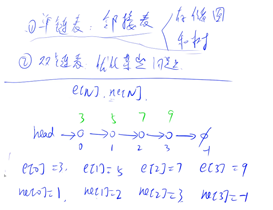 ① 单链表: 邻接表 存储图和树
② 双链表 优化某些问题
e[N], ne[N].
3 5 7 9
head → 0 → 0 → 0 → 0 → ∅
0 1 2 3 -1
e[0] = 3. e[1] = 5 e[2] = 7 e[3] = 9
ne[0] = 1. ne[1] = 2 ne[2] = 3 ne[3] = -1